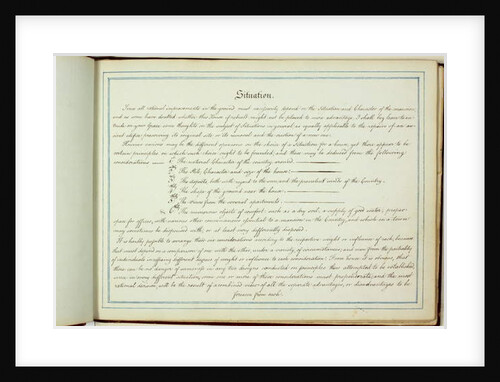 Situation.
Since all rational improvements in the ground must necessarily depend on the Situation and Character of the mansion
and as some have doubted whether this House if rebuilt might not be placed to more advantage, I shall beg leave to
on your Grace some thoughts on the subject of Situations in general as equally applicable to the repairs of an
house possessing its original site or the removal and the erection of a new one.
However various may be the different opinions on the choice of a Situation for a house, yet there appears to be
certain principles on which such choice ought to be founded, and these may be deduced from the following
considerations
The natural Character of the country around
The Style, Character and size of the house
The aspects, both with regard to the sun and the prevalent winds of the Country.
The shape of the ground near the house
The views from the several apartments
The numerous objects of comfort, such as a dry soil, a supply of good water, proper
space for offices, with various other conveniences essential to a mansion in the Country, and which in a town
may sometimes be dispensed with, or at least very differently disposed.
It is hardly possible to arrange these six considerations according to the respective weight or influence of each, because
that must depend on a comparison of one with the other under a variety of circumstances, and even from the partiality
of individuals in affixing different degrees of weight or influence to each consideration. From hence it is obvious, that
there can be no danger of sameness in any two designs conducted on principles thus attempted to be established,
since in every different situation, some one or more of these considerations must preponderate, and the most
rational decision will be the result of a combined view of all the separate advantages, or disadvantages to be
foreseen from each.